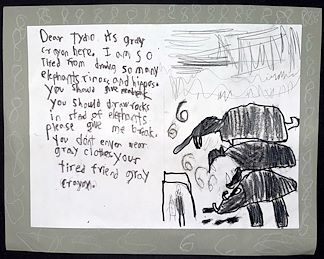 Dear Tydo its gray
crayon here. I am so
tired from drawing so many
elephants rinos and hippos.
you should give me a break
you should draw rocks
in stad of elephants
please give me break.
you dont even wear
gray clothes your
tired friend gray
crayon.